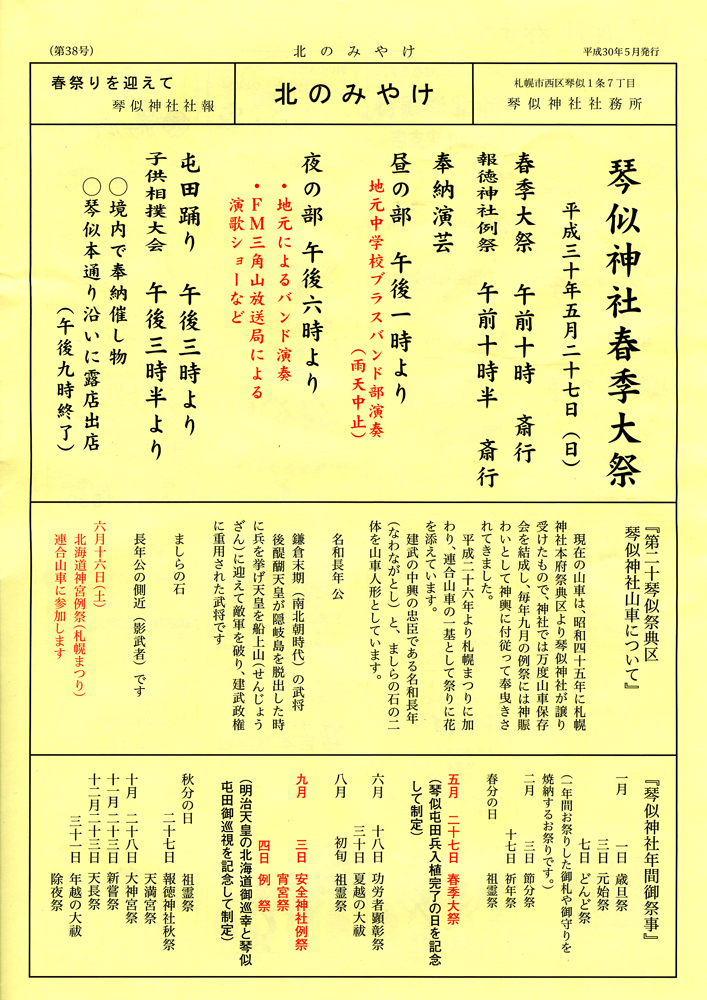 （第38号）
北のみやけ
平成30年5月発行
春祭りを迎えて
琴似神社社報
北のみやけ
札幌市西区琴似１条７丁目
琴似神社社務所
琴似神社春季大祭
平成三十年五月二十七日（日）
春季大祭　午前十時　斎行
報徳神社例祭　午前十時半　斎行
奉納演芸
昼の部　午後一時より
地元中学校ブラスバンド部演奏
（雨天中止）
夜の部　午後六時より
・地元によるバンド演奏
・ＦＭ三角山放送局による
演歌ショーなど
屯田踊り　午後三時より
子供相撲大会　午後三時半より
〇境内で奉納催し物
〇琴似本通り沿いに露店出店
（午後九時終了）
『第二十琴似祭典区
琴似神社山車について』
現在の山車は、昭和四十五年に札幌
神社本府祭典区より琴似神社が譲り
受けたもので、神社では万度山車保存
会を結成し、毎年九月の例祭には神賑
わいとして神輿に付従って奉曳きさ
れてきました。
平成二十六年より札幌まつりに加
わり、連合山車の一基として祭りに花
を添えています。
建武の中興の忠臣である名和長年
（なわながとし）と、ましらの石の二
体を山車人形としています。
名和長年公
鎌倉末期（南北朝時代）の武将
後醍醐天皇が隠岐島を脱出した時
に兵を挙げ天皇を船上山（せんじょう
ざん）に迎えて敵軍を破り、建武政権
に重用された武将です
ましらの石
長年公の側近（影武者）です
六月十六日（土）
北海道神宮例祭（札幌まつり）
連合山車に参加します
『琴似神社年間御祭事』
一月　一日　歳旦祭
三日　元始祭
七日　どんど祭
（一年間お祭りした御札や御守りを
焼納するお祭りです。）
二月　三日　節分祭
十七日　祈年祭
春分の日　祖霊祭
五月　二十七日　春季大祭
（琴似屯田兵入植完了の日を記念
して制定）
六月　十八日　功労者顕彰祭
三十日　夏越の大祓
八月　初旬　祖霊祭
九月　三日　安全神社例祭
宵宮祭
四日　例　祭
（明治天皇の北海道御巡幸と琴似
屯田御巡視を記念して制定）
秋分の日　祖霊祭
二十七日　報徳神社秋祭
天満宮祭
十月　二十八日　大神宮祭
十一月二十三日　新嘗祭
十二月二十三日　天長祭
三十一日　年越の大祓
除夜祭